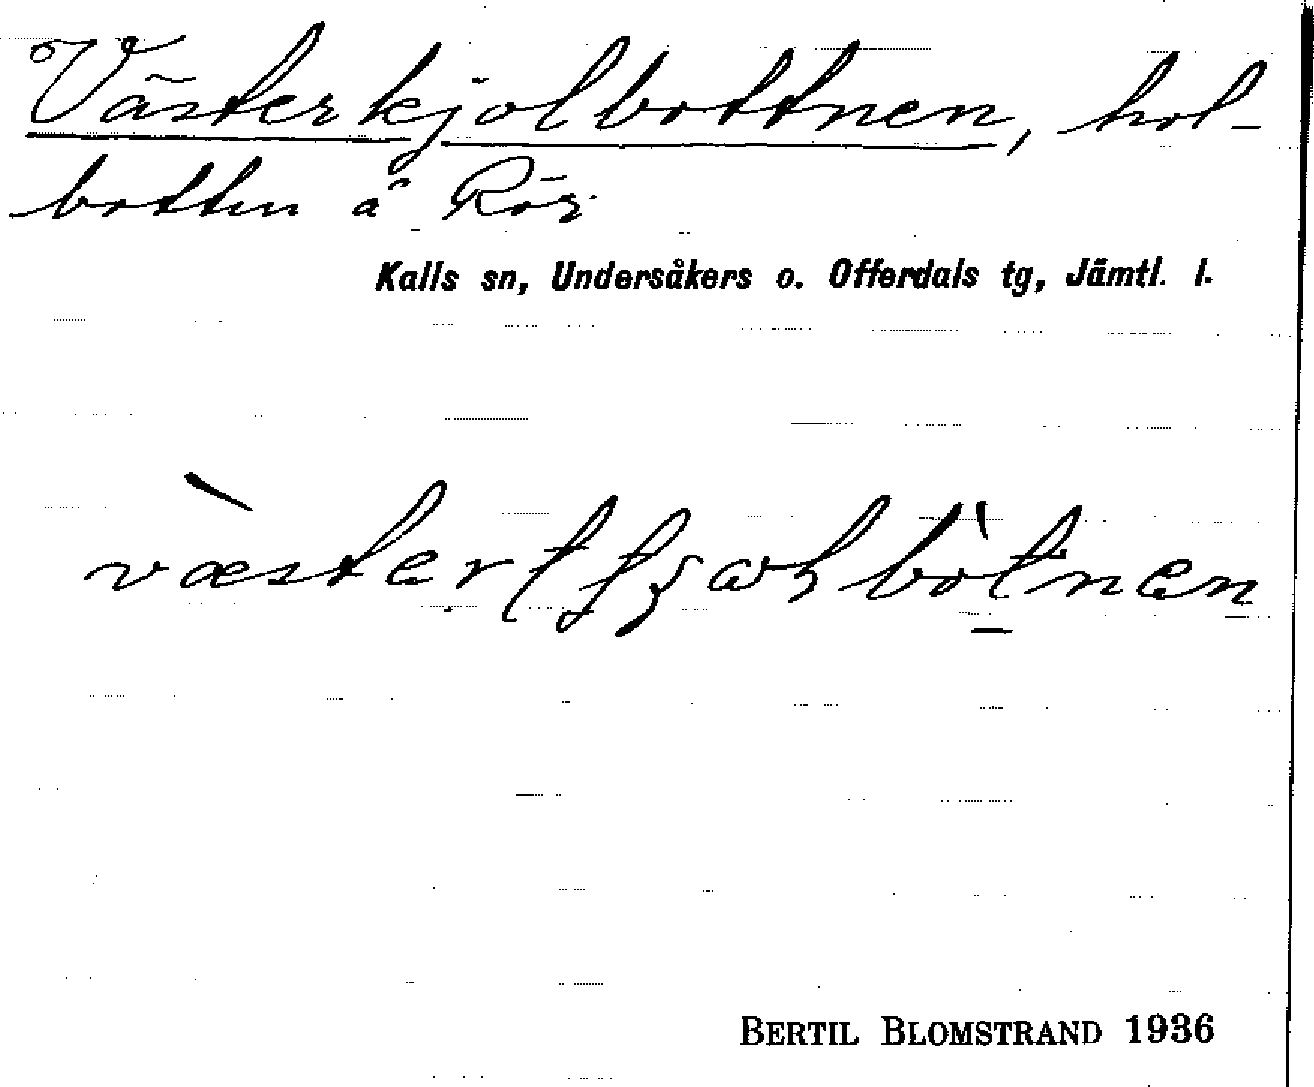 Västerkjolbottnen, hol-
botten å Rör
Kalls sn, Undersåkers o. Offerdals tg, Jämtl. l.
BERTIL BLOMSTRAND 1936